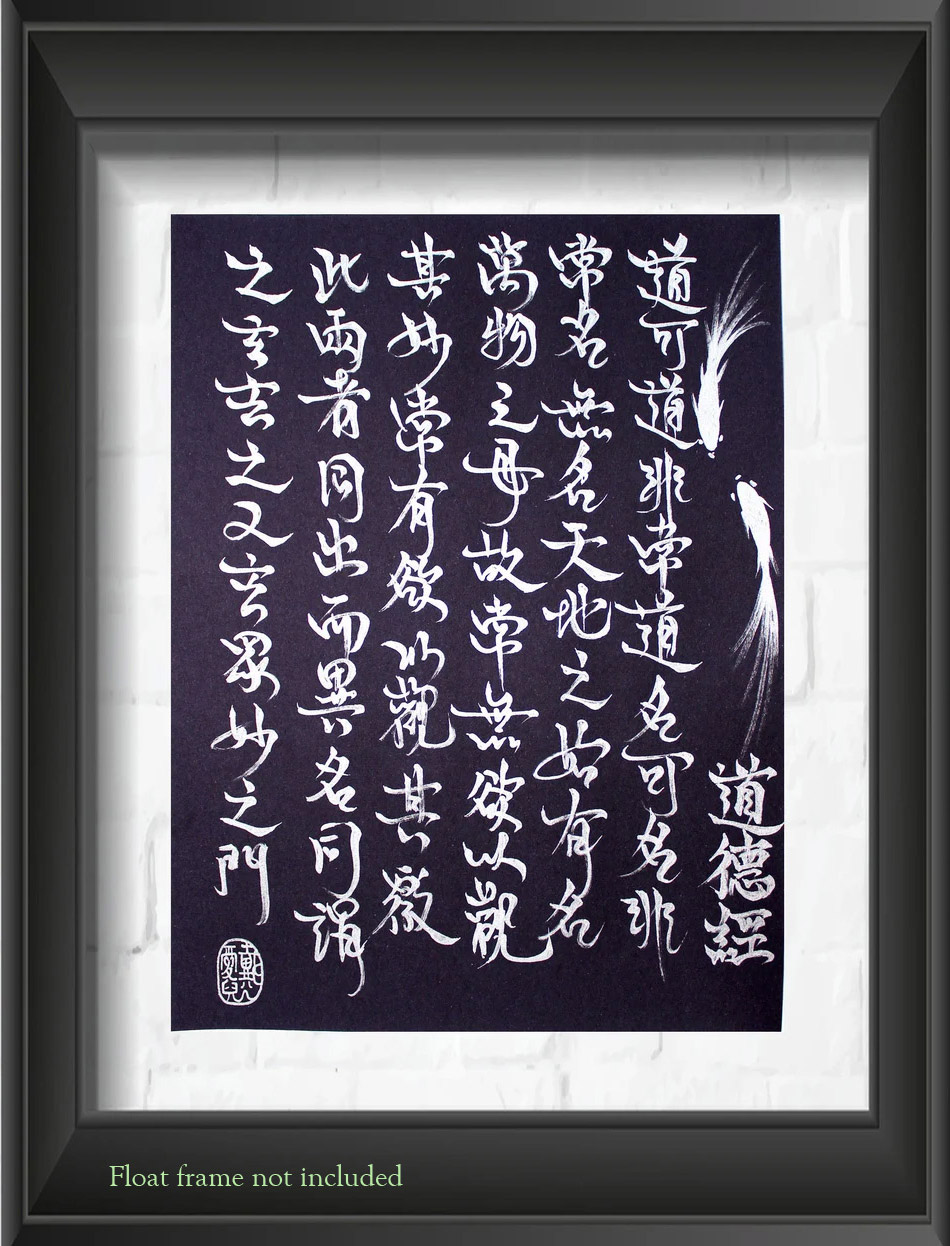 道德經
道可道非常道名可名非
常名無名天地之始有名
萬物之母故常無欲以觀
其妙常有欲以觀其徼
此兩者同出而異名同謂
之玄玄之又玄眾妙之門
Float frame not included